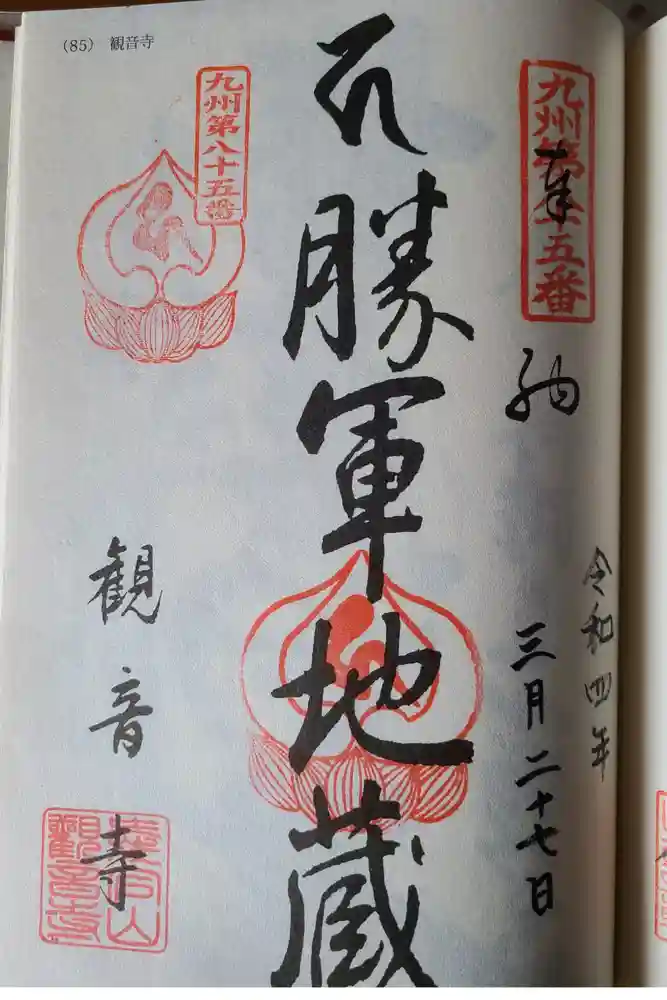 (85) 観音寺
九州第八十五番
奉
納
令和四年
三月二十七日
勝軍地蔵
九州第八十五番
観音寺